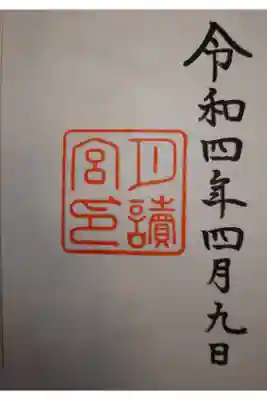 令和四年四月九日
月讀
宮印